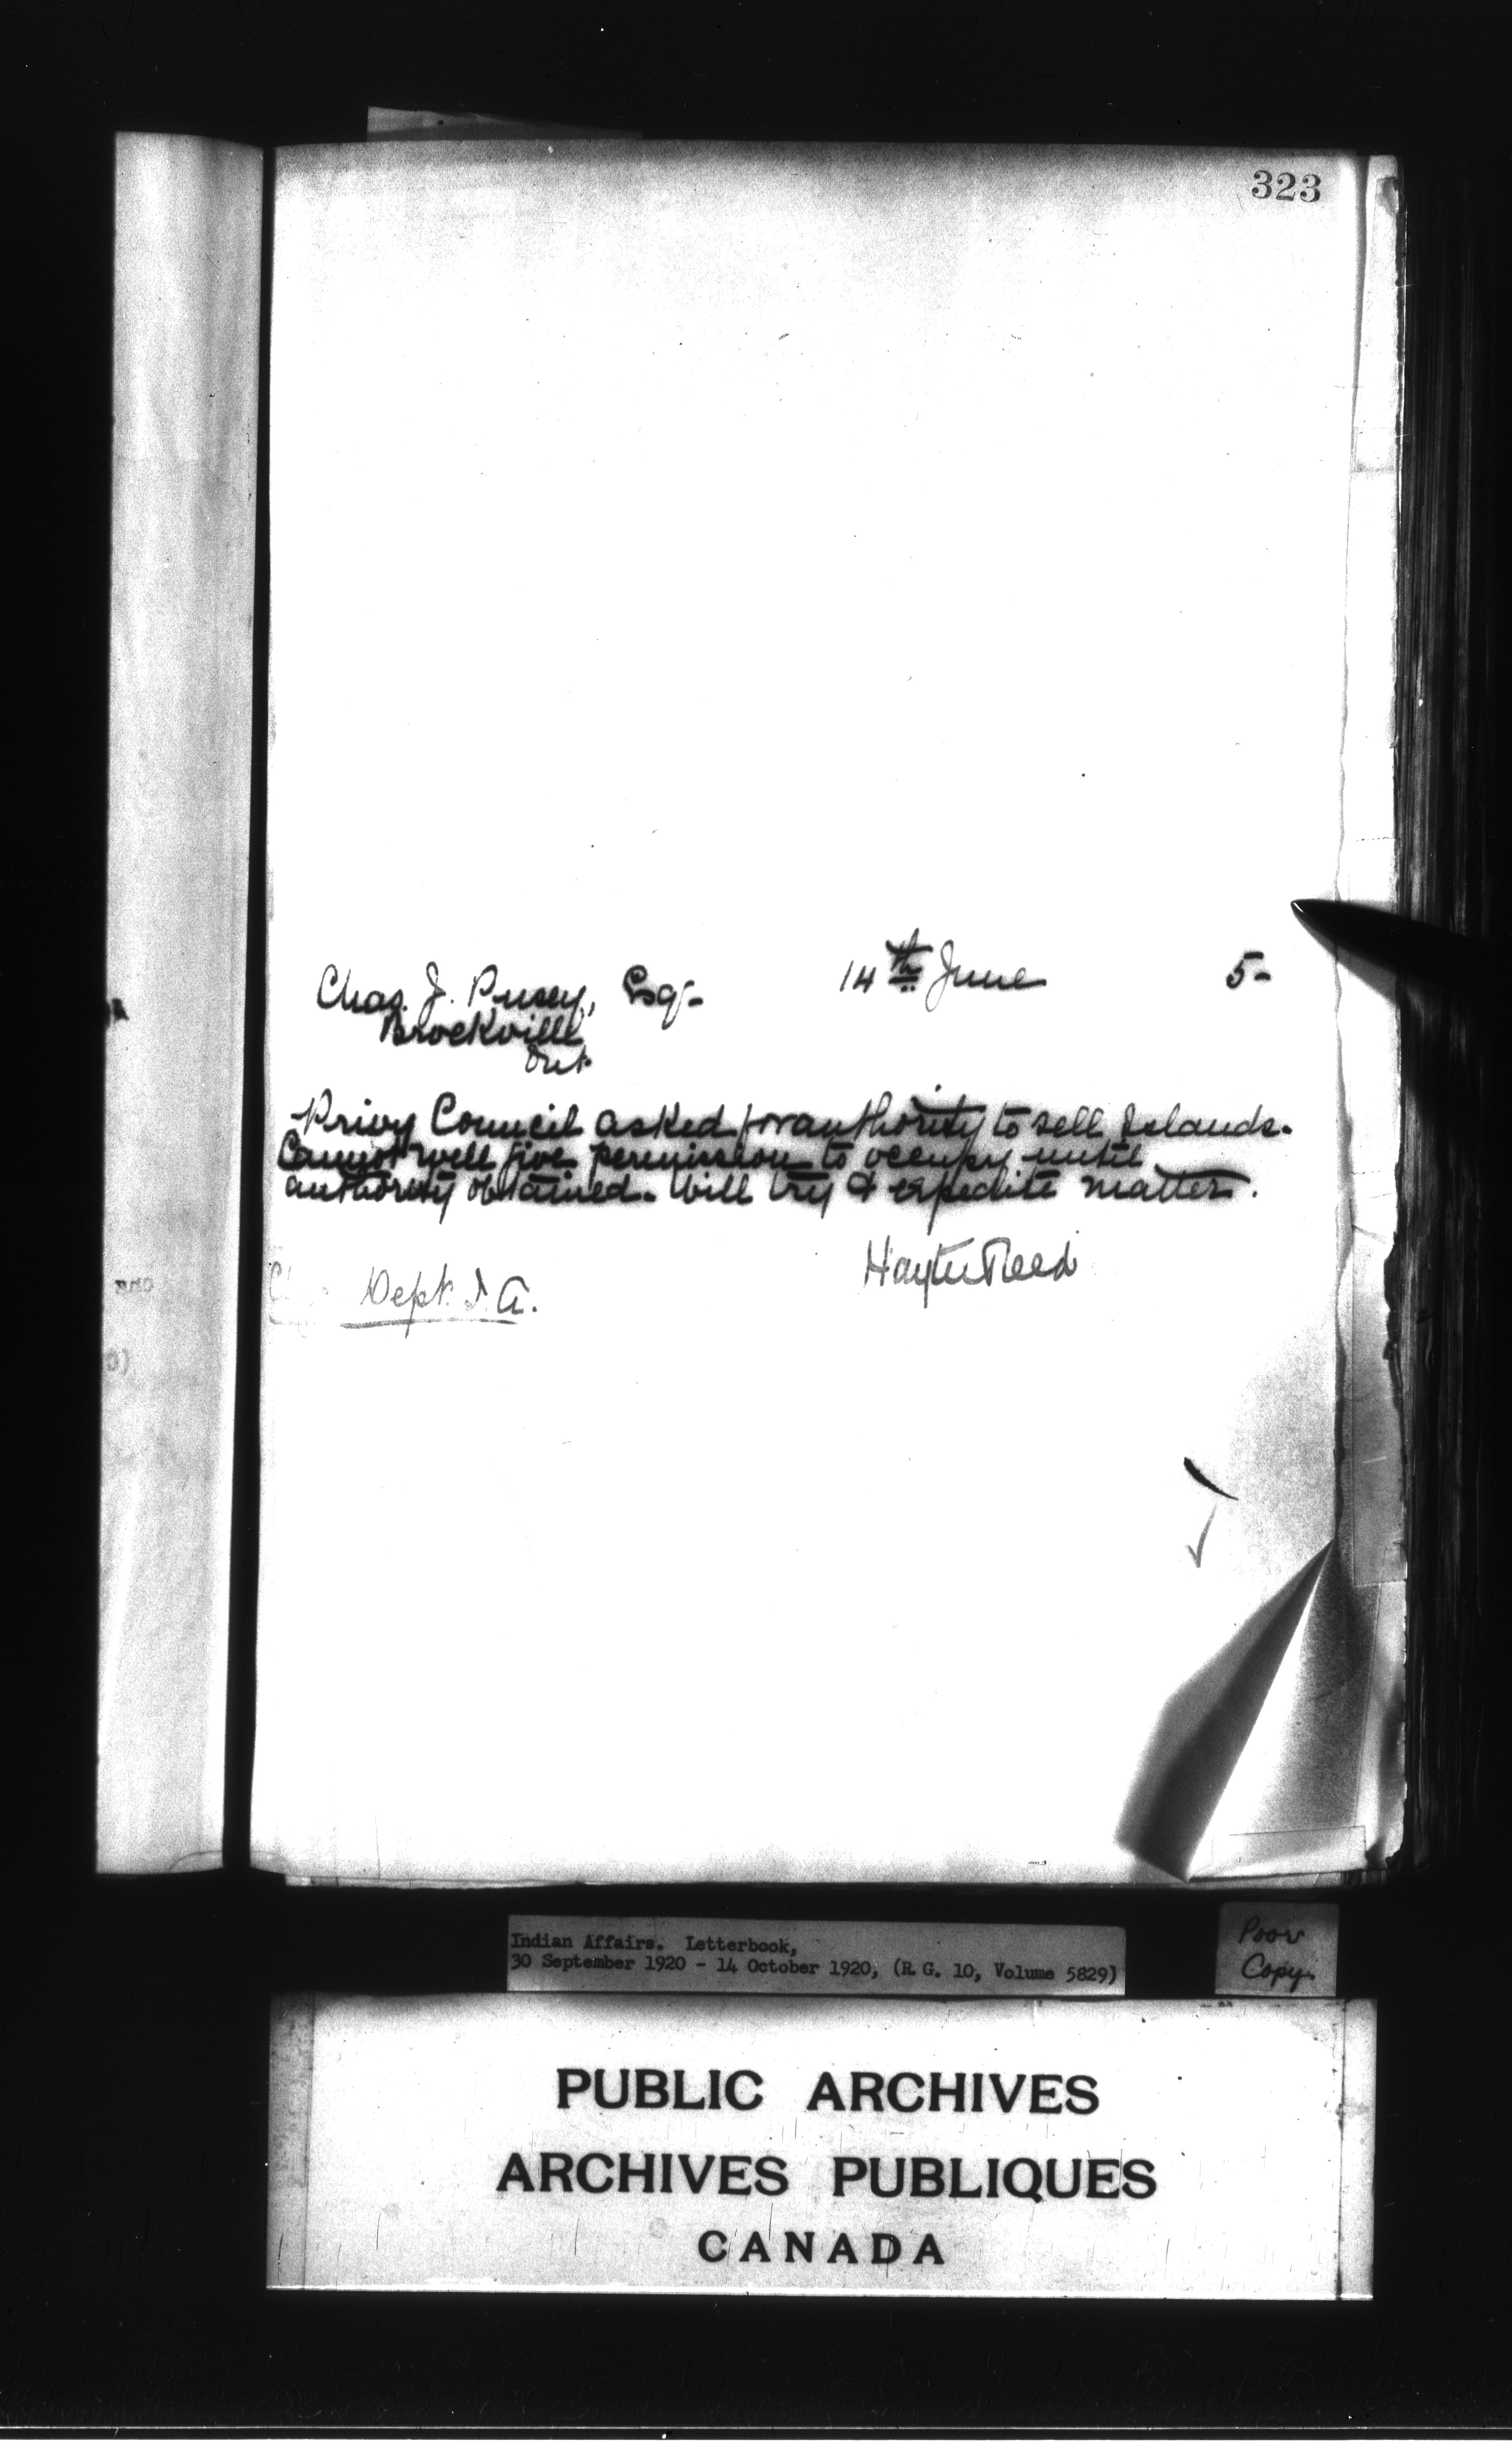 323
Chas. J. Pusey, Esq-
14th June
5-
Brockville
Ont.
Privy Council asked for authority to sell Islands.
Cannot well give permission to occupy until
authority obtained. Will try & expedite matter.
Hayter Reed
Dept. I. A.
Indian Affairs. Letterbook,
30 September 1920 - 14 October 1920, (R.G. 10, Volume 5829)
Poor
Copy
PUBLIC ARCHIVES
ARCHIVES PUBLIQUES
CANADA